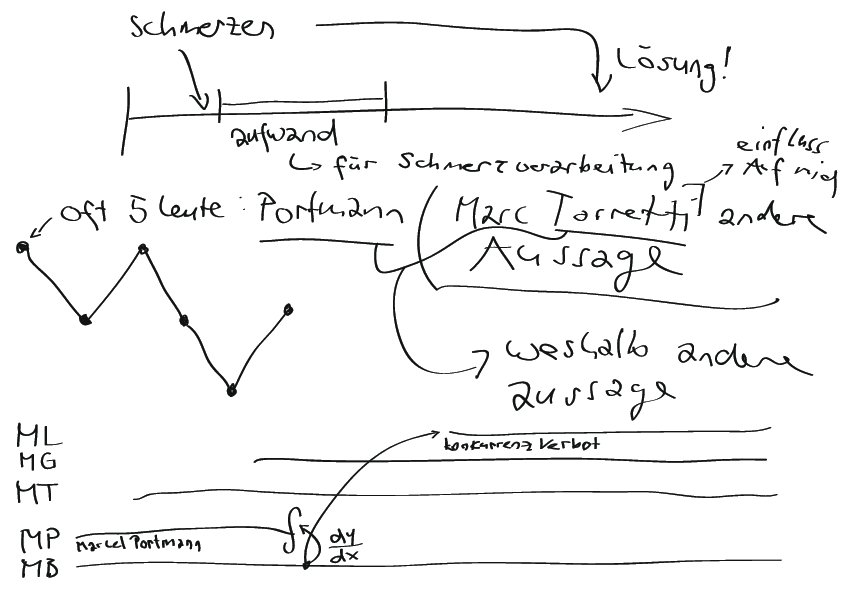 Schmerzen
Lösung!
aufwand
↳ für Schmerzverarbeitung
einfluss
Auf mich
oft 5 leute: Portmann
Marc Torretti
andere
Aussage
weshalb andere
aussage
ML
konkurrenz Verbot
MG
MT
MP
Marcel Portmann
∫
dy
dx
MB